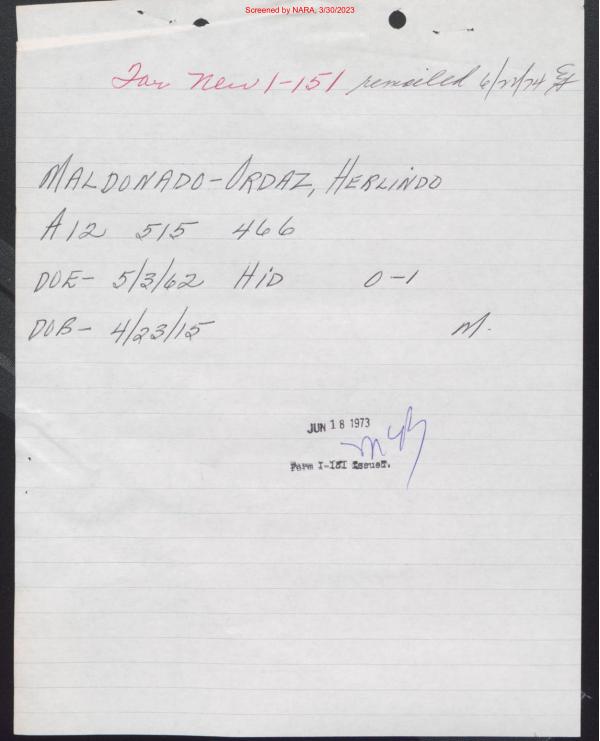 Screened by NARA, 3/30/2023
For New I-151 remailed 6/21/74
MALDONADO-ORDAZ, HERLINDO
A12 515 466
DOE- 5/3/62 HID O-1
DOB- 4/23/15 M.
JUN 18 1973
Form I-151 Issued.